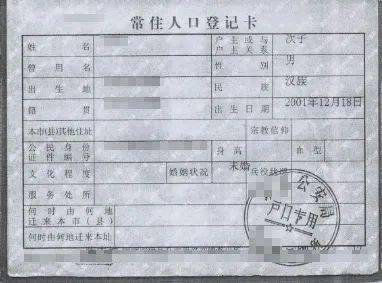 常住人口登记卡
姓名 户主或与户主关系 次子
曾用名 性别 男
出生地 民族 汉族
籍贯 出生日期 2001年12月18日
本市(县)其他住址 宗教信仰
公民身份证件编号 身高 血型
文化程度 婚姻状况 未婚 兵役状况
服务处所
何时由何地迁来本市(县)
何时由何地迁来本址
公安局
户口专用